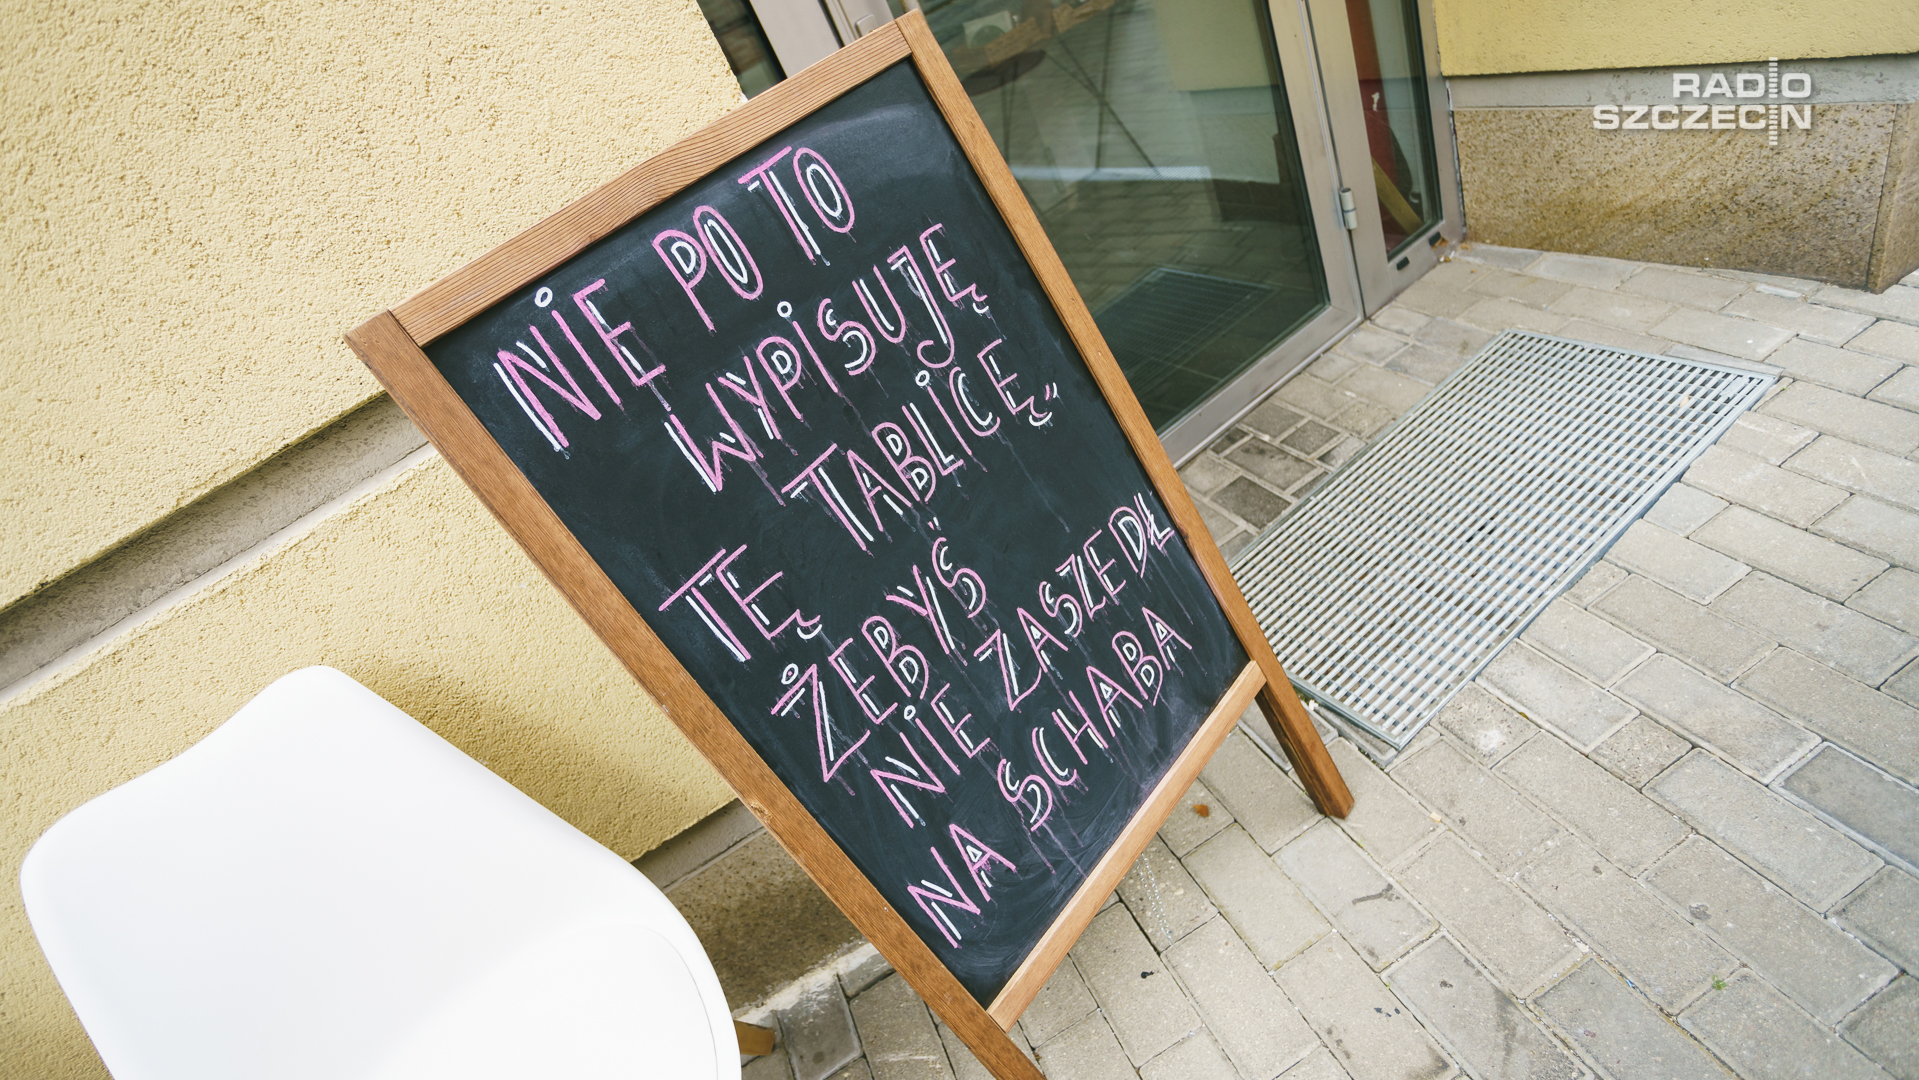 NIE PO TO
WYPISUJĘ
TABLICĘ„
TĘ
ŻEBYŚ
NIE ZASZEDŁ
NA SCHABA
RADIO
SZCZECIN